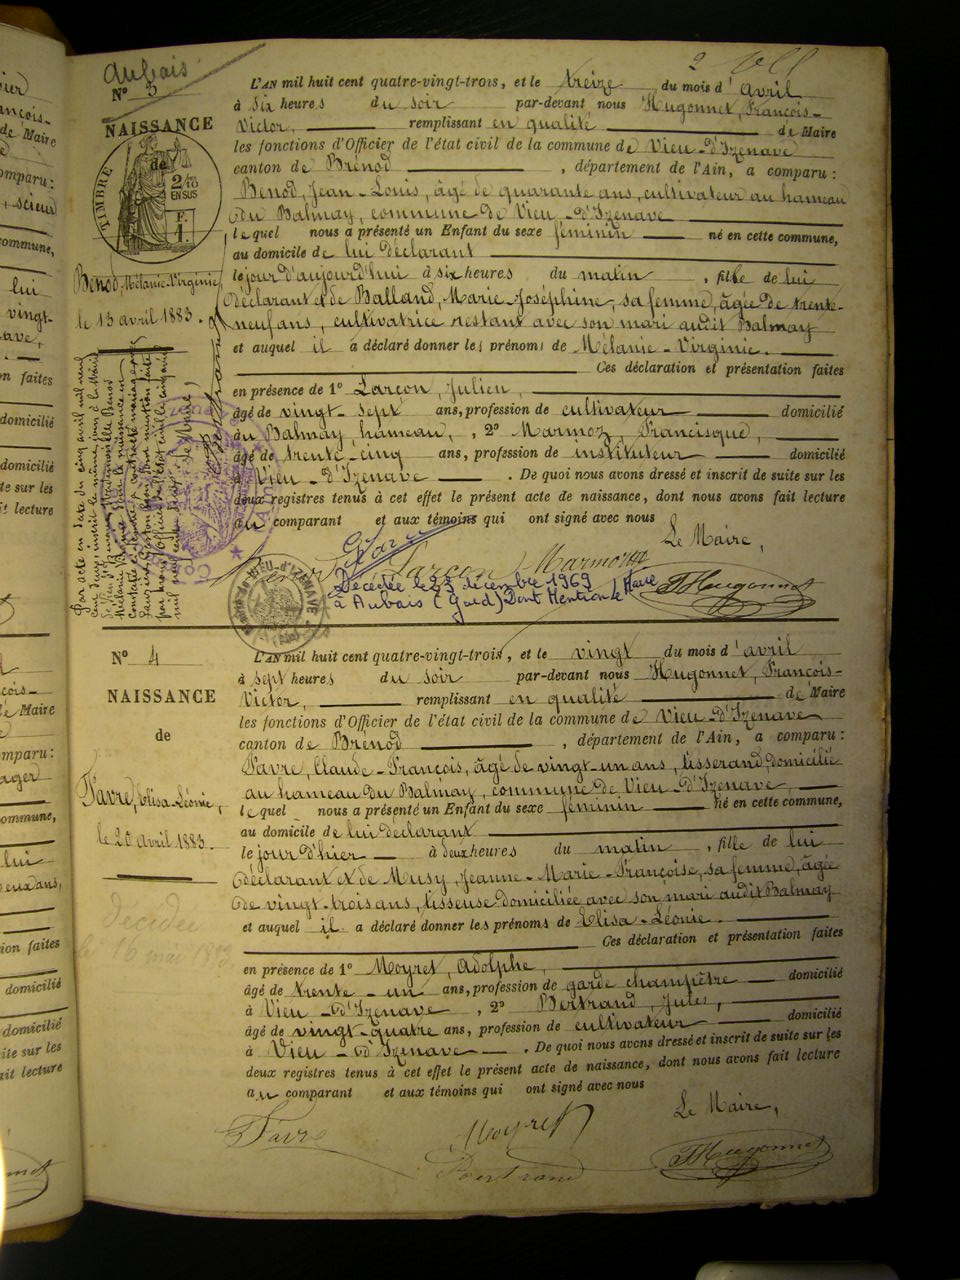 Aubais
N° 3
NAISSANCE
de
TIMBRE
2/10
EN SUS
Benod, Mélanie-Virginie,
le 13 avril 1883.
L'AN mil huit cent quatre-vingt-trois, et le treize du mois d'avril
à six heures du soir par-devant nous Hugonnet, François-
Victor, remplissant en qualité de Maire
les fonctions d'Officier de l'état civil de la commune de Vieu-d'Izenave
canton de Brénod, département de l'Ain, a comparu :
Benod, Jean-Louis, âgé de quarante ans, cultivateur au hameau
du Balmay, commune de Vieu-d'Izenave
lequel nous a présenté un Enfant du sexe féminin né en cette commune,
au domicile de lui déclarant
le jour d'aujourd'hui à six heures du matin, fille de lui
déclarant et de Balland, Marie-Joséphine, sa femme, âgée de trente-
neuf ans, cultivatrice restant avec son mari audit Balmay
et auquel il a déclaré donner les prénoms de Mélanie-Virginie.
Ces déclaration et présentation faites
en présence de 1° Larçon, Julien,
âgé de vingt-sept ans, profession de cultivateur domicilié
au Balmay, hameau, , 2° Marmoz, Francisque,
âgé de trente-cinq ans, profession de instituteur domicilié
à Vieu-d'Izenave. De quoi nous avons dressé et inscrit de suite sur les
deux registres tenus à cet effet le présent acte de naissance, dont nous avons fait lecture
au comparant et aux témoins qui ont signé avec nous
Le Maire,
Benod Larçon Marmoz
FHugonnet
Décédée le 23 décembre 1969
à Aubais (Gard) Dont Mention le Maire
N° 4
NAISSANCE
de
Favre, Elisa-Léonie,
le 20 avril 1883.
décédée
le 16 mai
L'AN mil huit cent quatre-vingt-trois, et le vingt du mois d'avril
à sept heures du soir par-devant nous Hugonnet, François-
Victor, remplissant en qualité de Maire
les fonctions d'Officier de l'état civil de la commune de Vieu-d'Izenave
canton de Brénod, département de l'Ain, a comparu :
Favre, Claude-François, âgé de vingt-un ans, tisserand, domicilié
au hameau du Balmay, commune de Vieu-d'Izenave,
lequel nous a présenté un Enfant du sexe féminin né en cette commune,
au domicile de lui déclarant
le jour d'hier à deux heures du matin, fille de lui
déclarant et de Musy, Jeanne-Marie-Françoise, sa femme, âgée
de vingt-trois ans, tisseuse domiciliée avec son mari audit Balmay
et auquel il a déclaré donner les prénoms de Elisa-Léonie.
Ces déclaration et présentation faites
en présence de 1° Moyret, Adolphe,
âgé de trente-un ans, profession de garde champêtre domicilié
à Vieu-d'Izenave, 2° Bertrand, Jules,
âgé de vingt-quatre ans, profession de cultivateur domicilié
à Vieu-d'Izenave. De quoi nous avons dressé et inscrit de suite sur les
deux registres tenus à cet effet le présent acte de naissance, dont nous avons fait lecture
au comparant et aux témoins qui ont signé avec nous
Le Maire,
Favre Moyret
Bertrand
FHugonnet